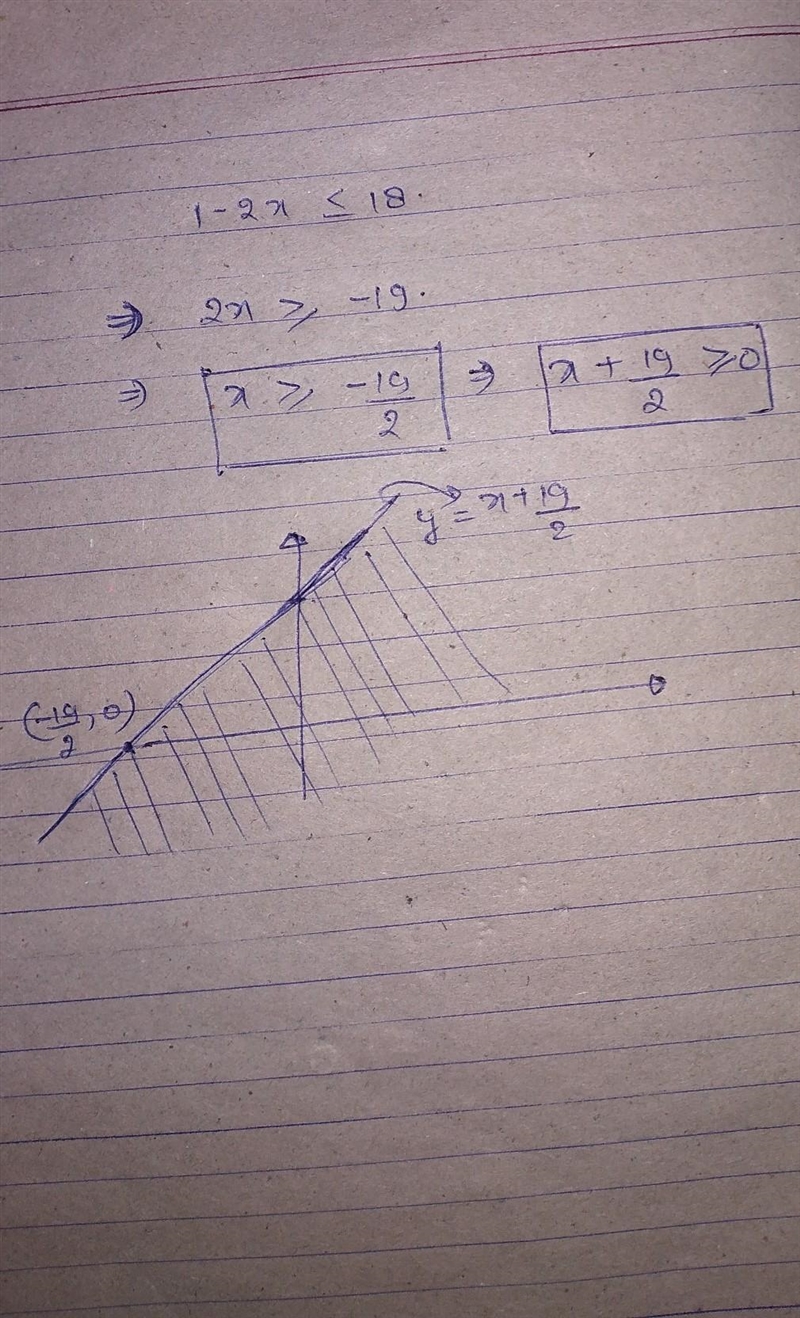 1-2x ≤ 18.
⇒ 2x ≥ -19.
⇒ x ≥ -19/2 ⇒ x + 19/2 ≥ 0
y = x + 19/2
(-19/2, 0)